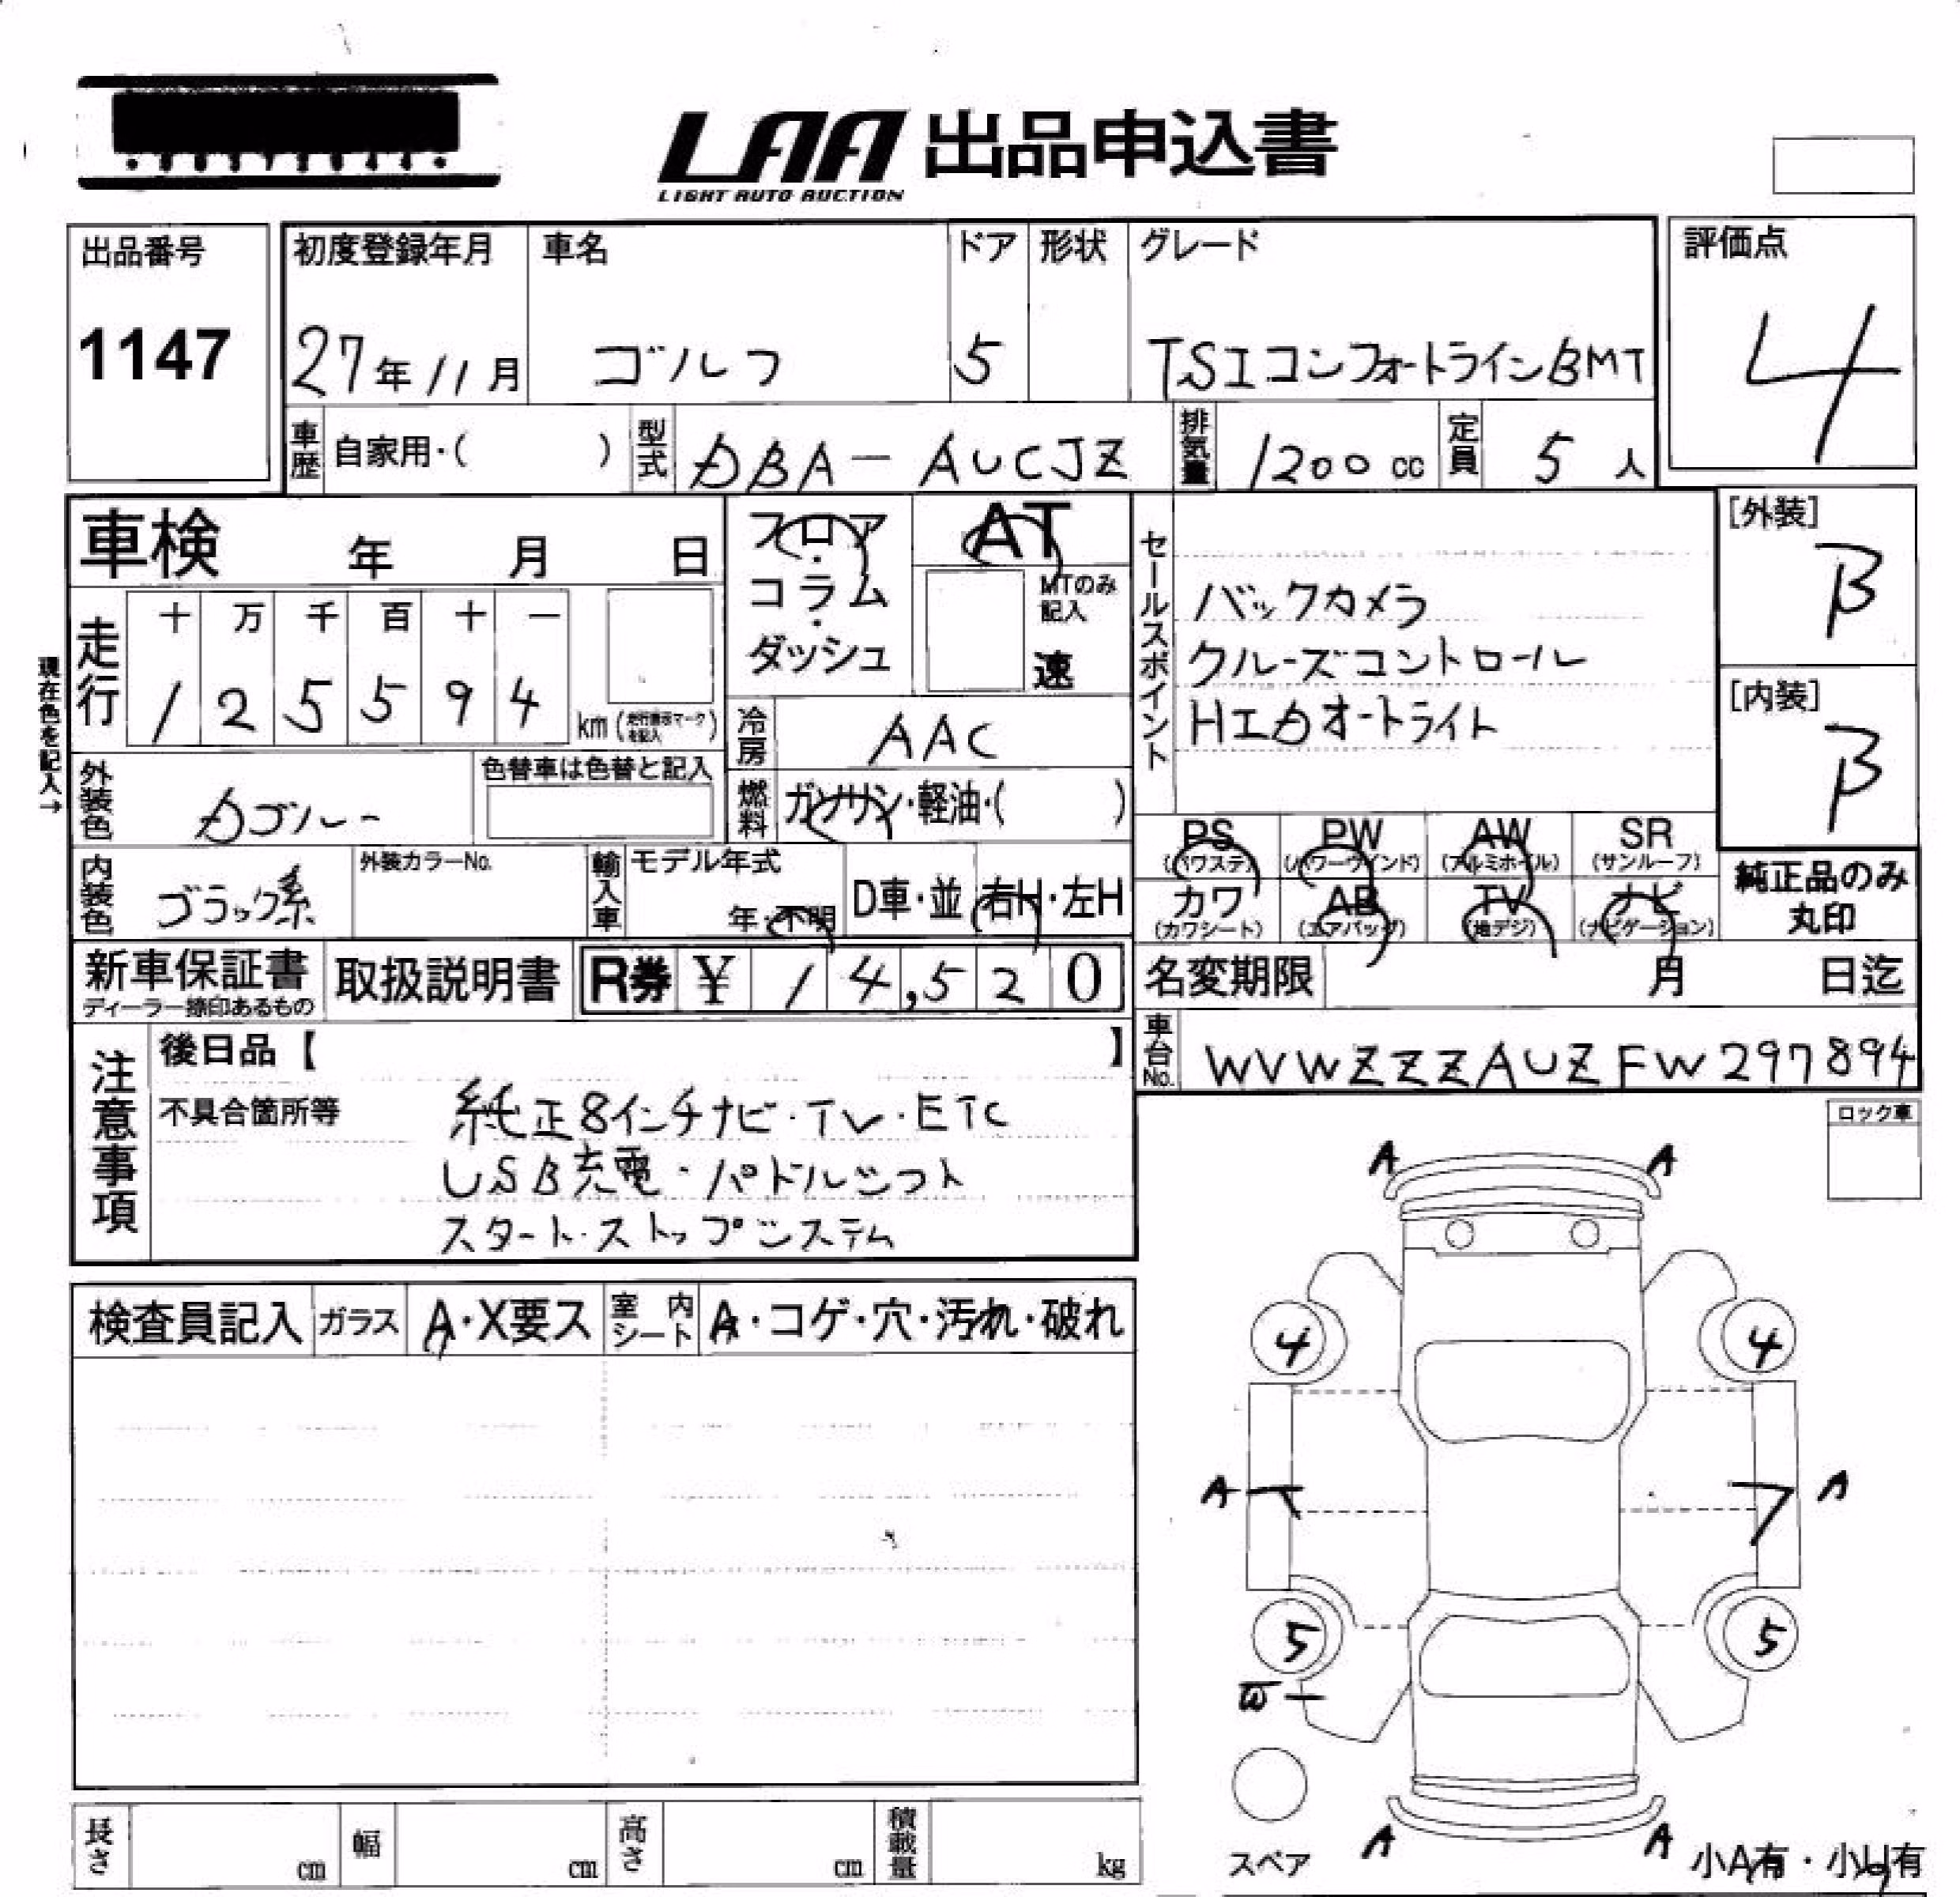 LAA 出品申込書
LIGHT AUTO AUCTION
出品番号
1147
初度登録年月 車名 ドア 形状 グレード
27年11月 ゴルフ 5 TSIコンフォートラインBMT
評価点
4
車歴 自家用・( ) 型式 DBA-AUCJZ 排気量 1200cc 定員 5人
車検 年 月 日
フロア・コラム・ダッシュ
AT
MTのみ記入
速
セールスポイント
バックカメラ
クルーズコントロール
HIDオートライト
[外装]
B
[内装]
B
現在色を記入→
走行 十 万 千 百 十 一
1 2 5 5 9 4 km (走行表示マークを記入)
冷房 AAC
外装色
色替車は色替と記入
燃料 ガソリン・軽油・( )
PS (パワステ) PW (パワーウインド) AW (アルミホイル) SR (サンルーフ)
カワ (カワシート) AB (エアバッグ) TV (地デジ) ナビ (ナビゲーション)
純正品のみ丸印
内装色 ブラック系 外装カラーNo. 輸入車 モデル年式 年・不明 D車・並 右H・左H
新車保証書 取扱説明書 R券 ¥ 14,520
ディーラー捺印あるもの
名変期限 月 日迄
車台No. WVWZZZAUZFW297894
注意事項
後日品【 】
不具合箇所等 純正8インチナビ・TV・ETC
USB充電・パドルシフト
スタート・ストップシステム
ロック車
検査員記入 ガラス A・X要ス 室内シート A・コゲ・穴・汚れ・破れ
A A
4 4
A A
5 5
W
スペア
A A
小A有・小U有
長さ cm 幅 cm 高さ cm 積載量 kg